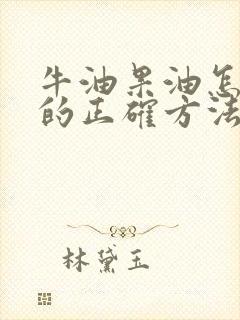 牛油果油怎
的正確方法
林黛玉